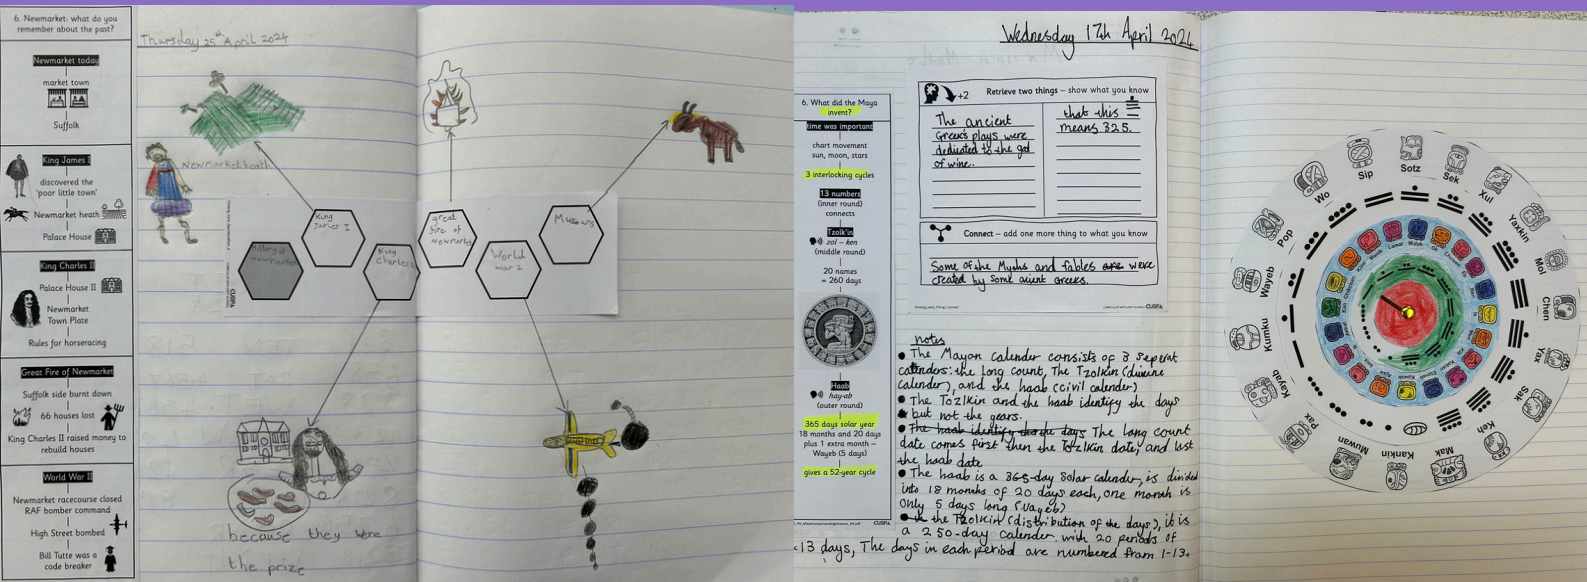 6. Newmarket: what do you
remember about the past?
Newmarket today
market town
Suffolk
King James I
discovered the
'poor little town'
Newmarket heath
Palace House
King Charles II
Palace House II
Newmarket
Town Plate
Rules for horseracing
Great Fire of Newmarket
Suffolk side burnt down
66 houses lost
King Charles II raised money to
rebuild houses
World War II
Newmarket racecourse closed
RAF bomber command
High Street bombed
Bill Tutte was a
code breaker
Thursday 25th April 2024
Newmarket heath
King
James I
King
Charles
great
fire of
Newmarket
World
war 2
newmarket
CUSP
because they were
the prize
Wednesday 17th April 2024
6. What did the Maya
invent?
time was important
chart movement
sun, moon, stars
3 interlocking cycles
13 numbers
(inner round)
connects
Tzolk'in
zol – ken
(middle round)
20 names
= 260 days
Haab
hay-ab
(outer round)
365 days solar year
18 months and 20 days
plus 1 extra month –
Wayeb (5 days)
gives a 52-year cycle
CUSP
+2
Retrieve two things – show what you know
The ancient
Greek's plays were
dedicated to the god
of wine.
that this
means 325.
Connect – add one more thing to what you know
Some of the Myths and fables are were
created by some acient greeks.
CUSP
notes
The Mayan calender consists of 3 seperat
calenders: the Long count, The Tzolkin (divine
calender), and the haab (civil calender)
The Tozlkin and the haab identify the days
but not the years.
The haab identify the days The long count
date comes first then the Tozlkin date, and last
the haab date
The haab is a 365-day solar calender, is divided
into 18 months of 20 days each, one month is
only 5 days long (Uayeb)
the Tzolkin (distribution of the days), it is
a 250-day calender with 20 periods of
13 days, The days in each period are numbered from 1-13.
Pop
Wo
Sip
Sotz
Sek
Xul
Yaxkin
Mol
Chen
Yax
Sak
Keh
Mak
Kankin
Muwan
Pax
Kayab
Kumku
Wayeb